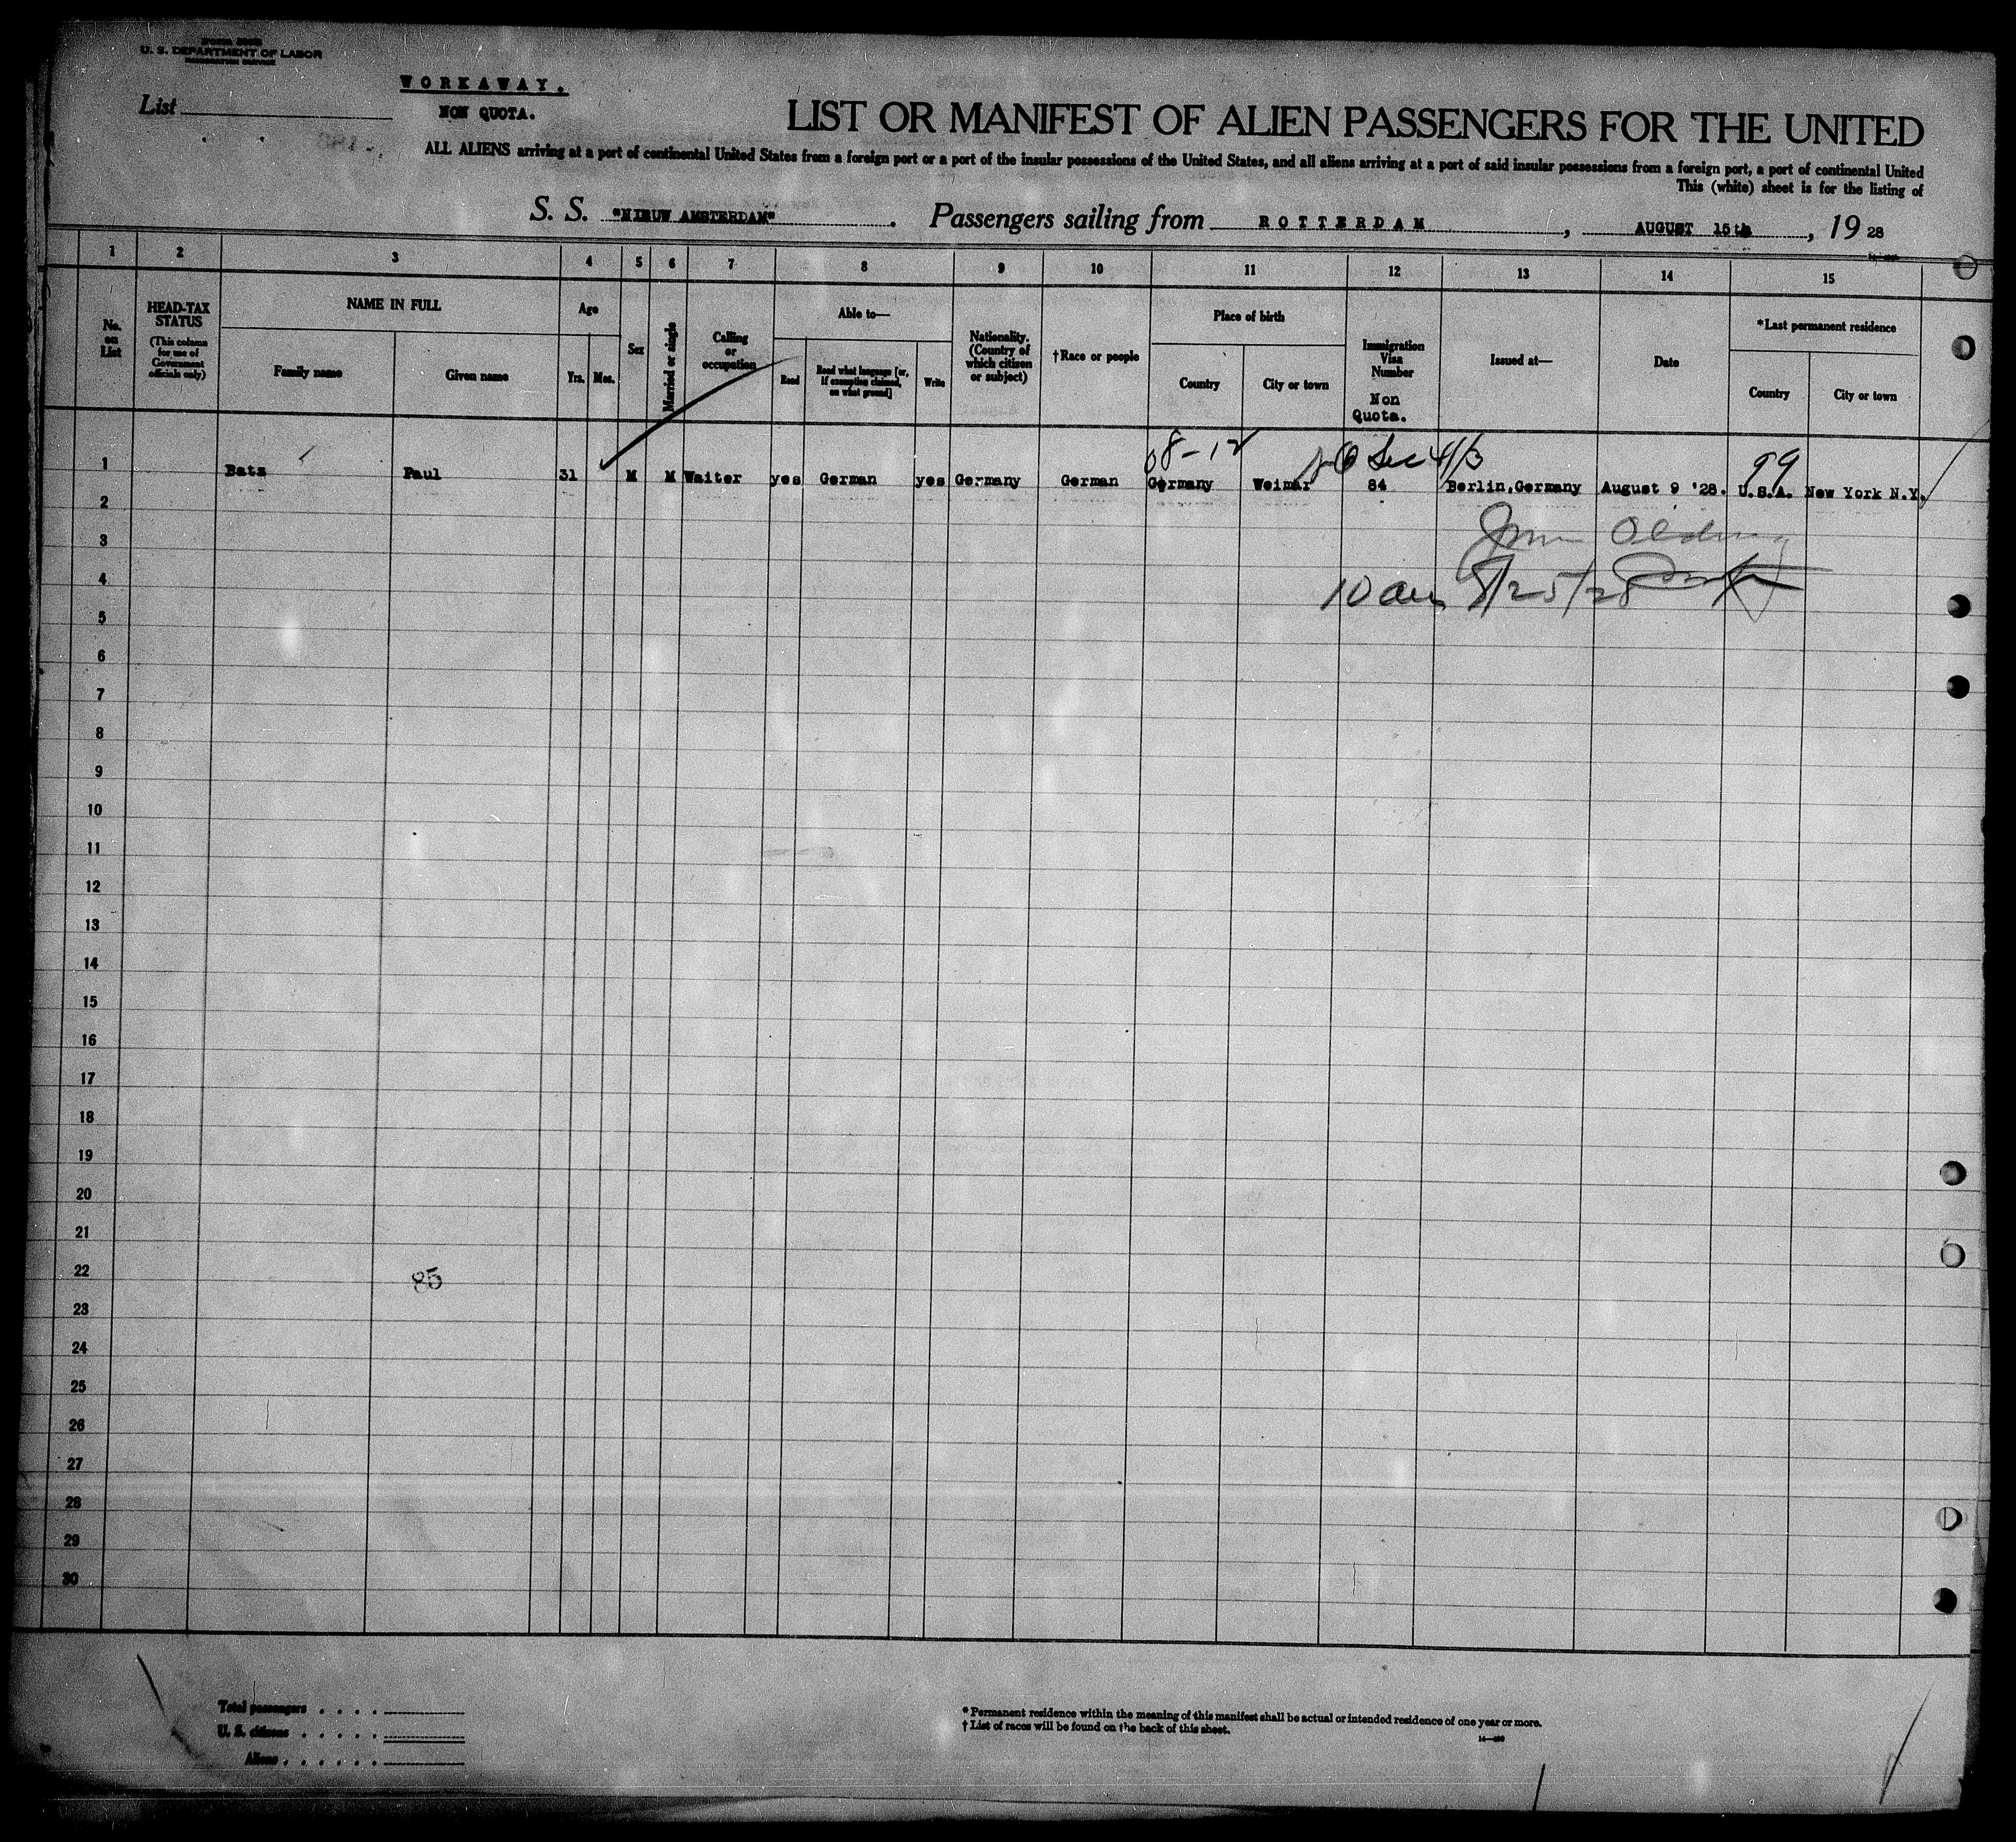 U. S. DEPARTMENT OF LABOR
WORKAWAY.
List
NON QUOTA.
LIST OR MANIFEST OF ALIEN PASSENGERS FOR THE UNITED
ALL ALIENS arriving at a port of continental United States from a foreign port or a port of the insular possessions of the United States, and all aliens arriving at a port of said insular possessions from a foreign port, a port of continental United
This (white) sheet is for the listing of
S. S. "NIEUW AMSTERDAM". Passengers sailing from ROTTERDAM, AUGUST 15th, 19 28
1 2 3 4 5 6 7 8 9 10 11 12 13 14 15
No. on List
HEAD-TAX STATUS
(This column for use of Government officials only)
NAME IN FULL
Family name
Given name
Age
Yrs.
Mos.
Sex
Married or single
Calling or occupation
Able to—
Read
Read what language [or, if exemption claimed, on what ground]
Write
Nationality. (Country of which citizen or subject)
†Race or people
Place of birth
Country
City or town
Immigration Visa Number
Non Quota.
Issued at—
Date
*Last permanent residence
Country
City or town
08-12
99
1 Batz Paul 31 M M Waiter yes German yes Germany German Germany Weimar 84 Berlin, Germany August 9 '28. U.S.A. New York N.Y.
2
3
4
10 am 8/25/28
5
6
7
8
9
10
11
12
13
14
15
16
17
18
19
20
21
22
85
23
24
25
26
27
28
29
30
Total passengers . . . .
U. S. citizens . . . . .
Aliens . . . . . .
* Permanent residence within the meaning of this manifest shall be actual or intended residence of one year or more.
† List of races will be found on the back of this sheet.